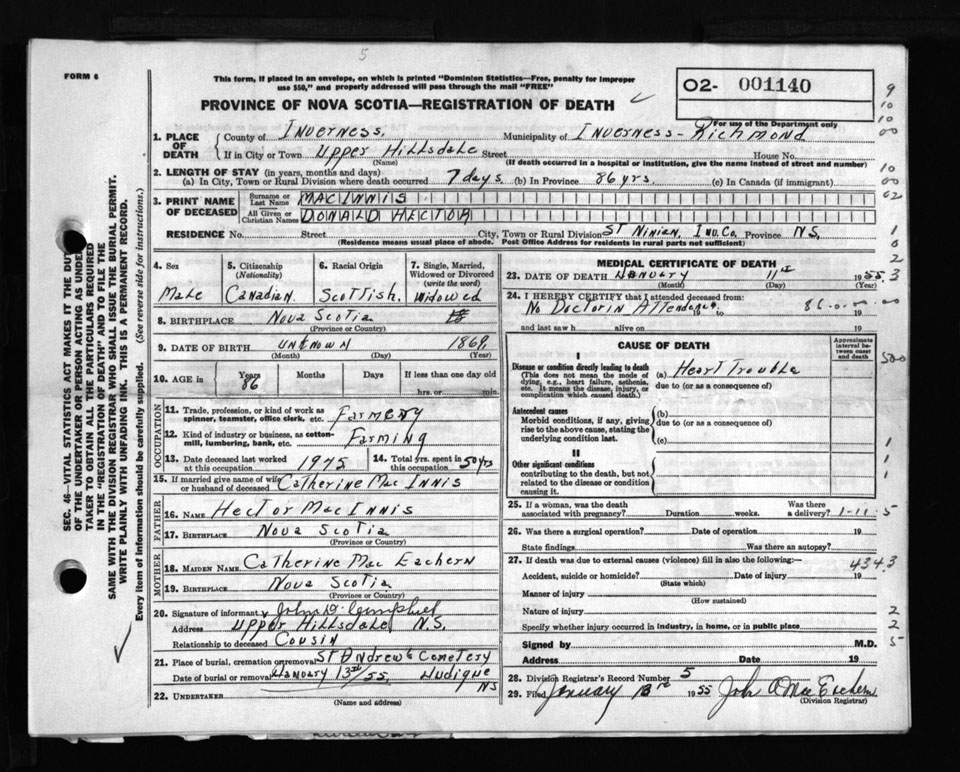 5
FORM 6
This form, if placed in an envelope, on which is printed "Dominion Statistics—Free, penalty for improper
use $50," and properly addressed will pass through the mail "FREE"
PROVINCE OF NOVA SCOTIA—REGISTRATION OF DEATH
O2- 001140
For use of the Department only
9
10
10
00
1. PLACE OF DEATH { County of Inverness. Municipality of Inverness - Richmond
If in City or Town Upper Hillsdale Street House No.
(Name) (If death occurred in a hospital or institution, give the name instead of street and number)
2. LENGTH OF STAY (in years, months and days)
(a) In City, Town or Rural Division where death occurred 7 days. (b) In Province 86 yrs. (c) In Canada (if immigrant)
10
00
02
3. PRINT NAME OF DECEASED { Surname or Last Name MACINNIS
All Given or Christian Names DONALD HECTOR
RESIDENCE No. Street City, Town or Rural Division St Ninian, Inv. Co. Province N.S.
(Residence means usual place of abode. Post Office Address for residents in rural parts not sufficient)
1
0
2
3
4. Sex 5. Citizenship (Nationality) 6. Racial Origin 7. Single, Married, Widowed or Divorced (write the word)
Male Canadian Scottish. Widowed
8. BIRTHPLACE Nova Scotia
(Province or Country)
9. DATE OF BIRTH unknown 1869
(Month) (Day) (Year)
10. AGE in Years 86 Months Days If less than one day
hrs. or min.
OCCUPATION
11. Trade, profession, or kind of work as spinner, teamster, office clerk, etc. Farmery
12. Kind of industry or business, as cotton-mill, lumbering, bank, etc. Farming
13. Date deceased last worked at this occupation 1945 14. Total yrs. spent in this occupation 50 yrs
15. If married give name of wife or husband of deceased Catherine Mac Innis
FATHER
16. NAME Hector Mac Innis
17. BIRTHPLACE Nova Scotia
(Province or Country)
MOTHER
18. MAIDEN NAME Catherine Mac Eachern
19. BIRTHPLACE Nova Scotia
(Province or Country)
20. Signature of informant John D. Campbell
Address Upper Hillsdale N.S.
Relationship to deceased Cousin
21. Place of burial, cremation or removal St Andrews Cemetery
Date of burial or removal January 13th 55. Judique
NS
22. UNDERTAKER
(Name and address)
MEDICAL CERTIFICATE OF DEATH
23. DATE OF DEATH January 11th 1955
(Month) (Day) (Year)
24. I HEREBY CERTIFY that I attended deceased from:
No Doctor in Attendance 19 to 19
and last saw h alive on 19
CAUSE OF DEATH
Approximate interval between onset and death
I
Disease or condition directly leading to death
(This does not mean the mode of dying, e.g., heart failure, asthenia, etc. It means the disease, injury, or complication which caused death.)
(a) Heart Trouble
due to (or as a consequence of)
Antecedent causes
Morbid conditions, if any, giving rise to the above cause, stating the underlying condition last.
(b)
due to (or as a consequence of)
(c)
II
Other significant conditions
contributing to the death, but not related to the disease or condition causing it.
500
1
1
1
25. If a woman, was the death associated with pregnancy? Duration weeks. Was there a delivery? 1-11-5
26. Was there a surgical operation? Date of operation 19
State findings Was there an autopsy?
27. If death was due to external causes (violence) fill in also the following:— 4343
Accident, suicide or homicide? Date of injury 19
(State which)
Manner of injury
(How sustained)
Nature of injury 2
Specify whether injury occurred in industry, in home, or in public place 2
Signed by M.D. 5
Address Date 19
28. Division Registrar's Record Number 5
29. Filed January 1955 John A Mac Eachern
(Division Registrar)
SEC. 46—VITAL STATISTICS ACT MAKES IT THE DUTY
OF THE UNDERTAKER OR PERSON ACTING AS UNDER-
TAKER TO OBTAIN ALL THE PARTICULARS REQUIRED
IN THE "REGISTRATION OF DEATH" AND TO FILE THE
SAME WITH THE DIVISION REGISTRAR WHO SHALL ISSUE THE BURIAL PERMIT.
WRITE PLAINLY WITH UNFADING INK. THIS IS A PERMANENT RECORD.
Every item of information should be carefully supplied. (See reverse side for instructions.)